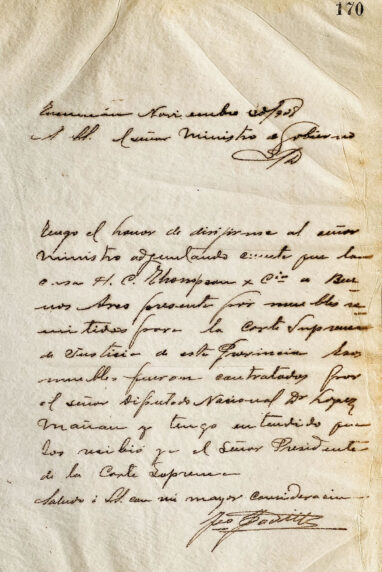 170
Tucumán Noviembre 20/908
A S.S. el señor Ministro de Gobierno
S/D
Tengo el honor de dirijirme al señor
Ministro adjuntando cuenta que la
casa H. C. Thompson & Cia de Bue
nos Ares presente por muebles re
mitidos para la Corte Suprema
de Justicia de esta Provincia Los
muebles fueron contratados por
el señor Diputado Nacional Dr Lopez
Mañan y tengo entendido que
los recibió ya el Señor Presidente
de la Corte Suprema
Saludo á S.S. con mi mayor consideracion